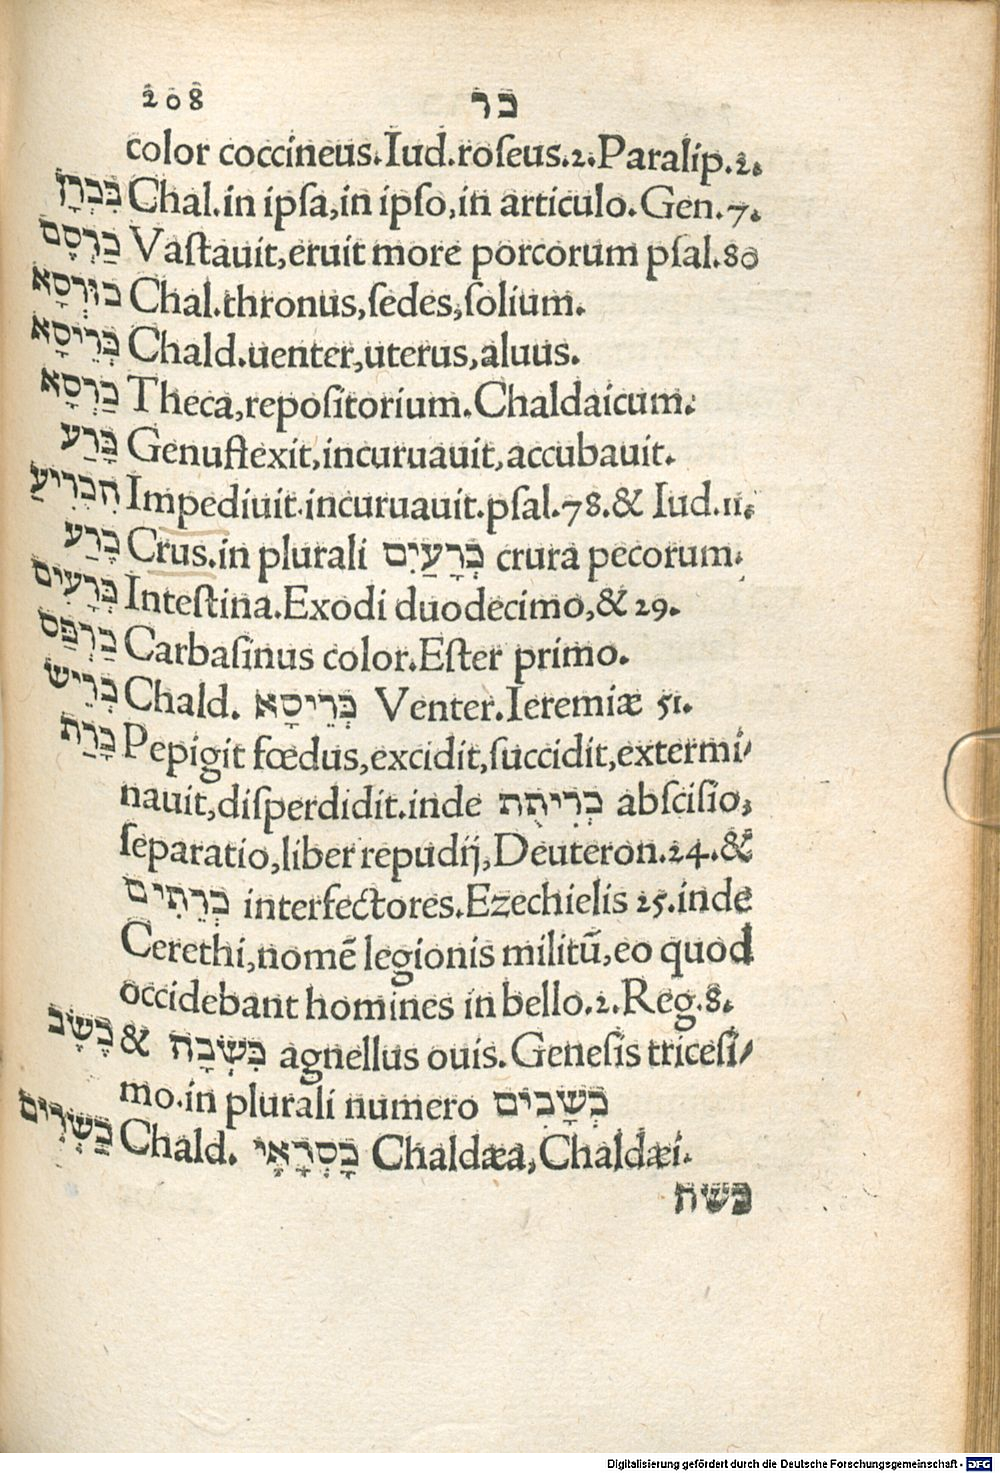 208 כר
color coccineus.Iud.roseus.2.Paralip.2.
בִּכְרָן Chal.in ipsa,in ipso,in articulo.Gen.7.
כַּרְסֵם Vastauit,eruit more porcorum psal.80
כּוּרְסָא Chal.thronus,sedes,solium.
כְּרֵיסָא Chald.uenter,uterus,aluus.
כַּרְסָא Theca,repositorium.Chaldaicum.
כָּרַע Genuflexit,incuruauit,accubauit.
הִכְרִיעַ Impediuit.incuruauit.psal.78.& Iud.11.
כֶּרַע Crus.in plurali כְּרָעַיִם crura pecorum.
כְּרָעִים Intestina.Exodi duodecimo,& 29.
כַּרְפַּס Carbasinus color.Ester primo.
כְּרֵישׂ Chald. כְּרֵיסָא Venter.Ieremiæ 51.
כָּרַת Pepigit fœdus,excidit,succidit,extermi/
nauit,disperdidit.inde כְּרִיתֻת abscisio,
separatio,liber repudij,Deuteron.24.&
כְּרֵתִים interfectores.Ezechielis 25.inde
Cerethi,nomē legionis militū,eo quod
occidebant homines in bello.2.Reg.8.
כֶּשֶׂב & כִּשְׂבָה agnellus ouis.Genesis tricesi/
mo.in plurali numero כְּשָׂבִים
כַּשְׂדִּים Chald. כַּסְדָּאֵי Chaldæa,Chaldæi.
כשח
Digitalisierung gefördert durch die Deutsche Forschungsgemeinschaft - DFG